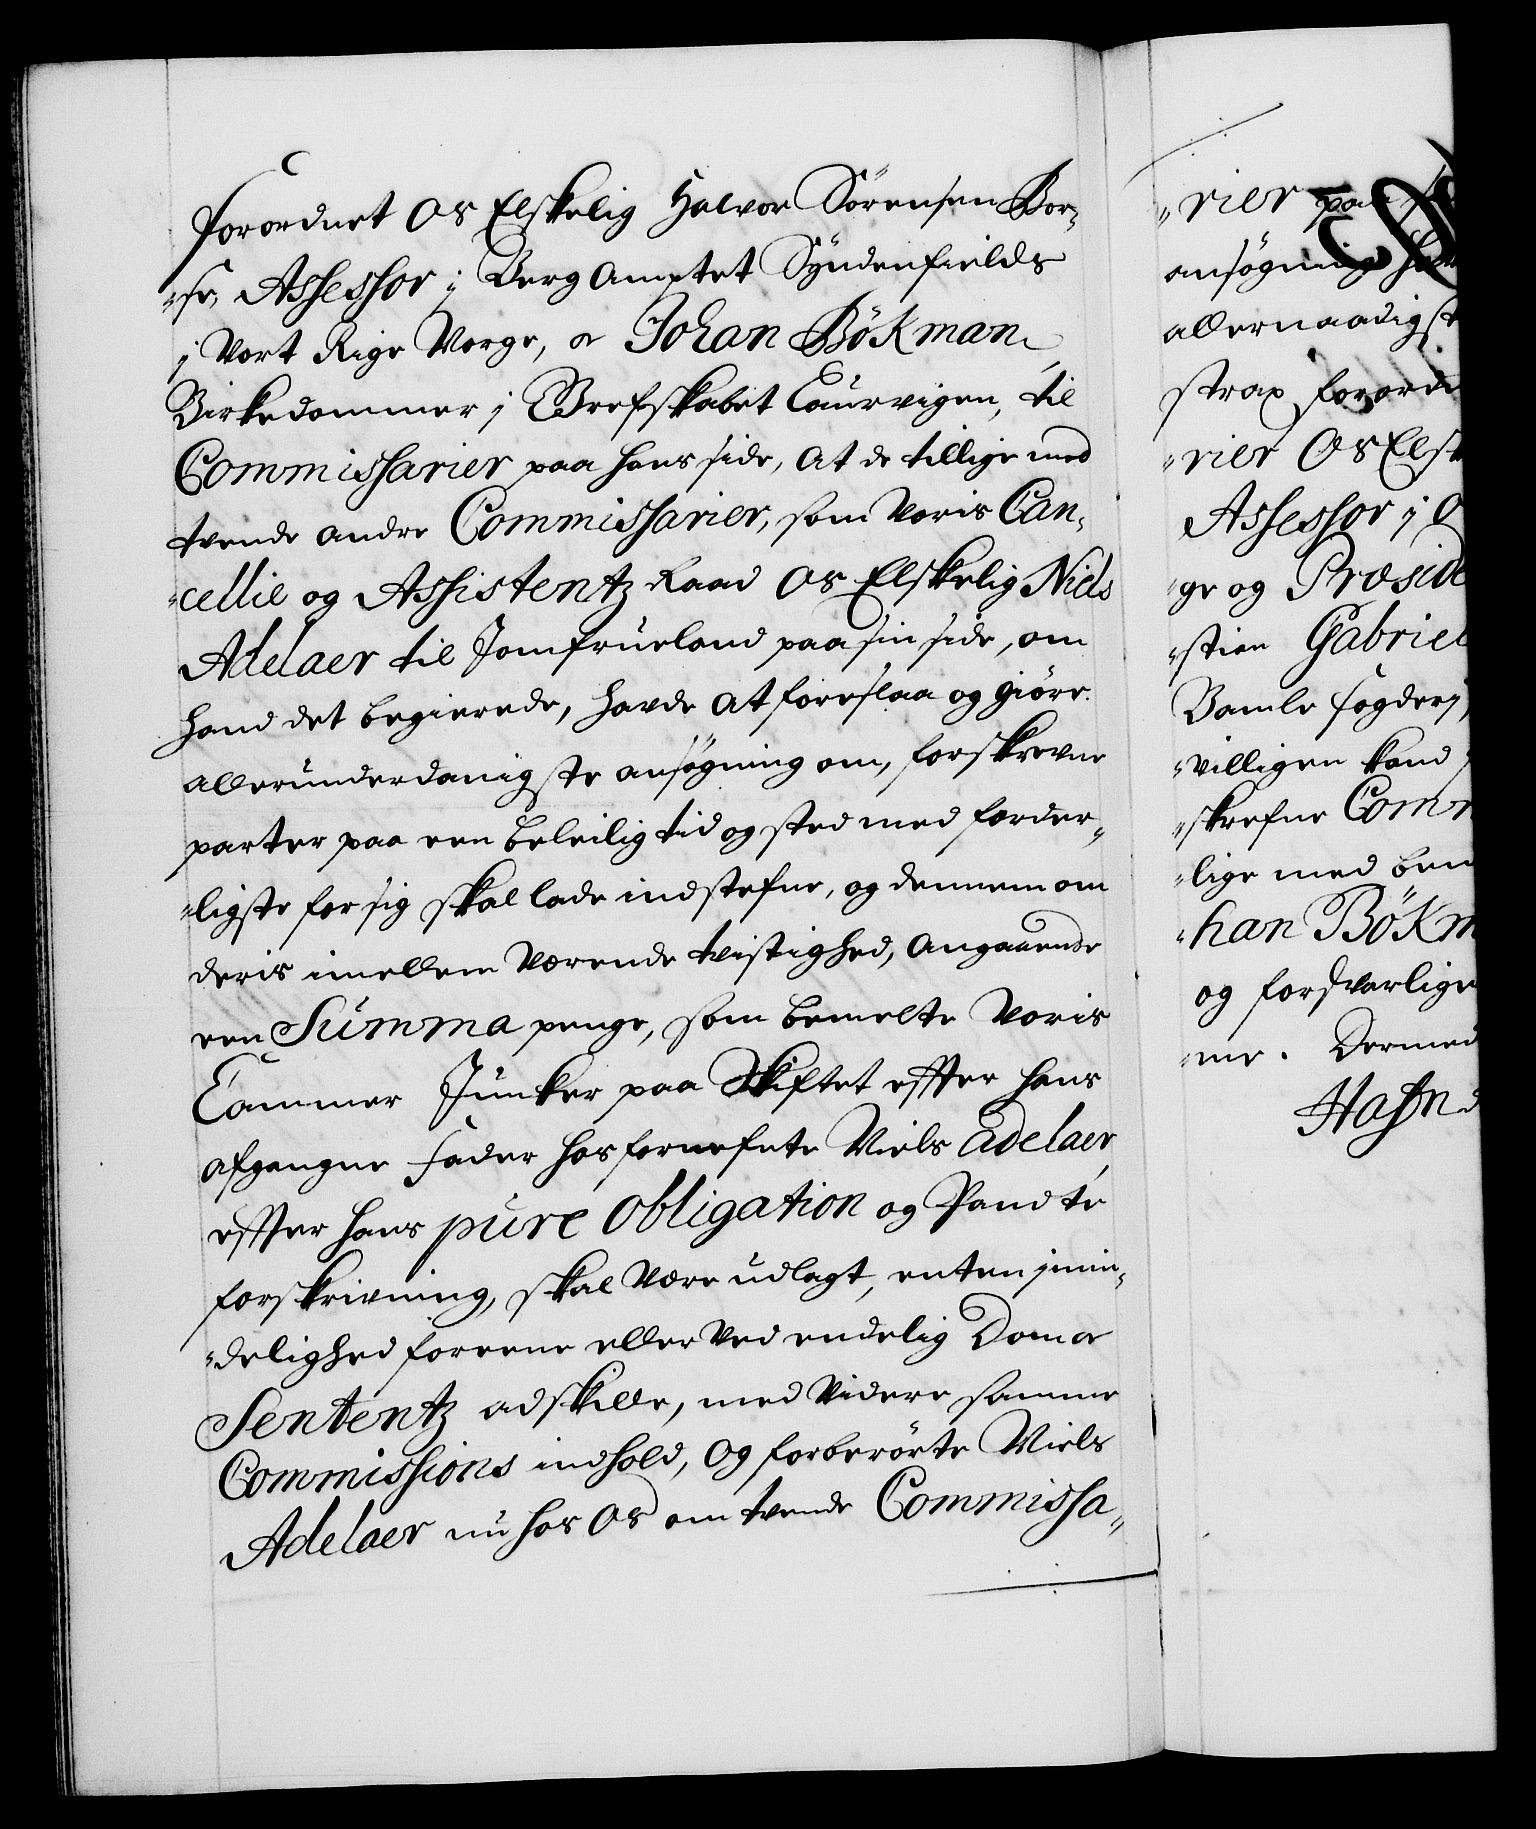 forordnet Os Elskelig Halvor Sörensen Bor„
„se, Assessor j Berg Amptet Syndenfields
j Vort Rige Norge, o Johan Bökman,
Birkedommer j Grefskabet Laurvigen, til
Commissarier paa hans side, at de tillige med
tvende andre Commissarier, som Voris Can„
„cellie og Assistentz Raad Os Elskelig Niels
Adelaer til Jomfrueland paa sin side, om
hand det begierede, hafde at foreslaa og giöre
allerunderdanigste ansögning om, forskrevne
parter paa een beleilig tid og sted med forder„
„ligste for sig skal lade indstefne, og dennem om
deris imellem Værende tvistighed, Angaaende
een Summa penge, som bemelte Voris
Cammer Junker paa Skiftet effter hans
afgangne Fader hos fornefnte Niels Adelaer
effter hans pure Obligation og Pandte
forskrivning, skal Være udlagt, enten j min„
„delighed foreene eller Ved endelig Dom oc
Sententz adskille, med Videre samme
Commissions indhold, Og forberörte Niels
Adelaer nu hos Os om tvende Commissa„
„rier paa
ansögning
allernaadigst
strax forord
„rier Os Elsk
Assessor j O
„ge og Præside
„stian Gabriel
Bamle fogderj,
„villigen kand
„skrefne Comm
„lige med bem
„han Bökm
og forsvarlige
„me. Dermed
Hafn